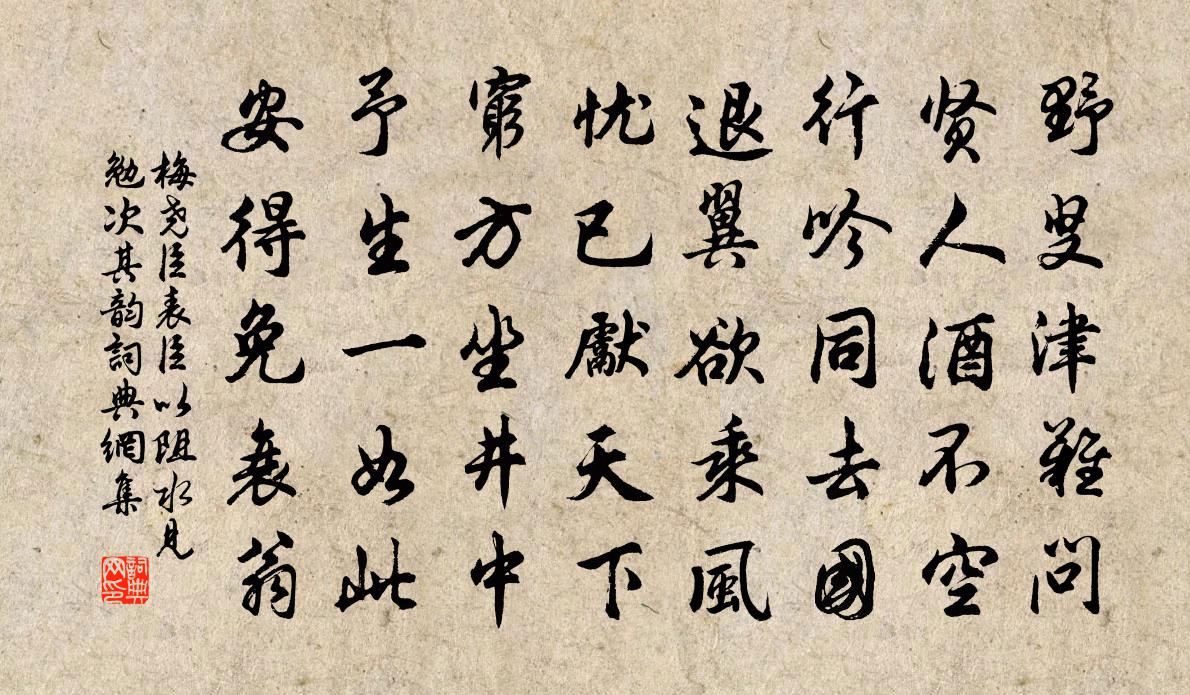 野叟津難問
贤人酒不空
行吟同去國
退翼欲乘風
忧已獻天下
窮方坐井中
予生一如此
安得免衰翁
梅尧臣表臣以阻水見
勉次其韵詞典網集
詞典网印